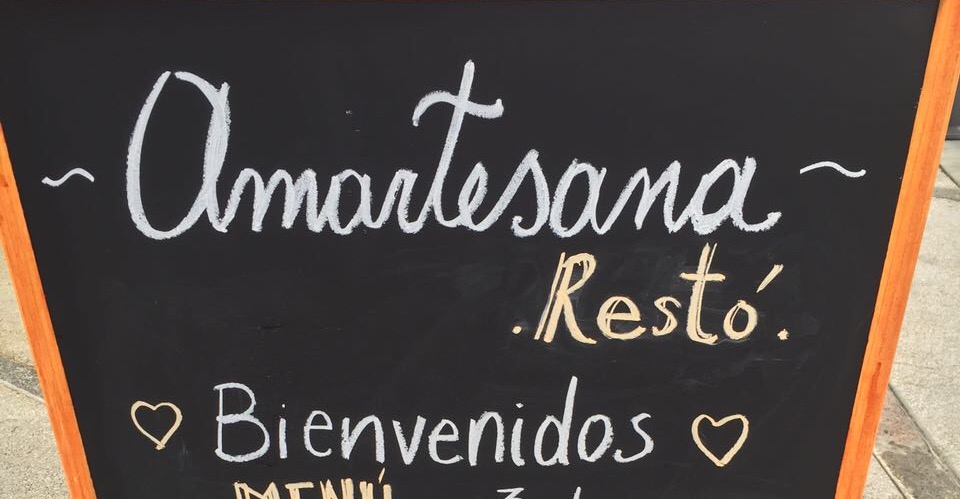 ~ Amartesana ~
.Restó.
♡ Bienvenidos ♡
MENÚ